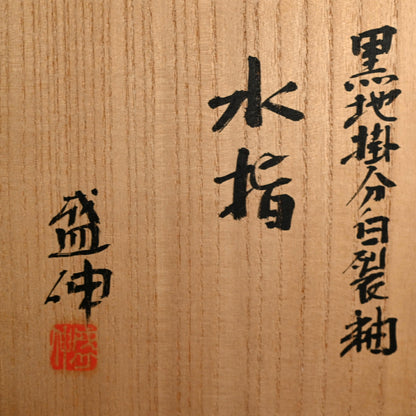 黒地掛分白裂釉
水指
盛伸